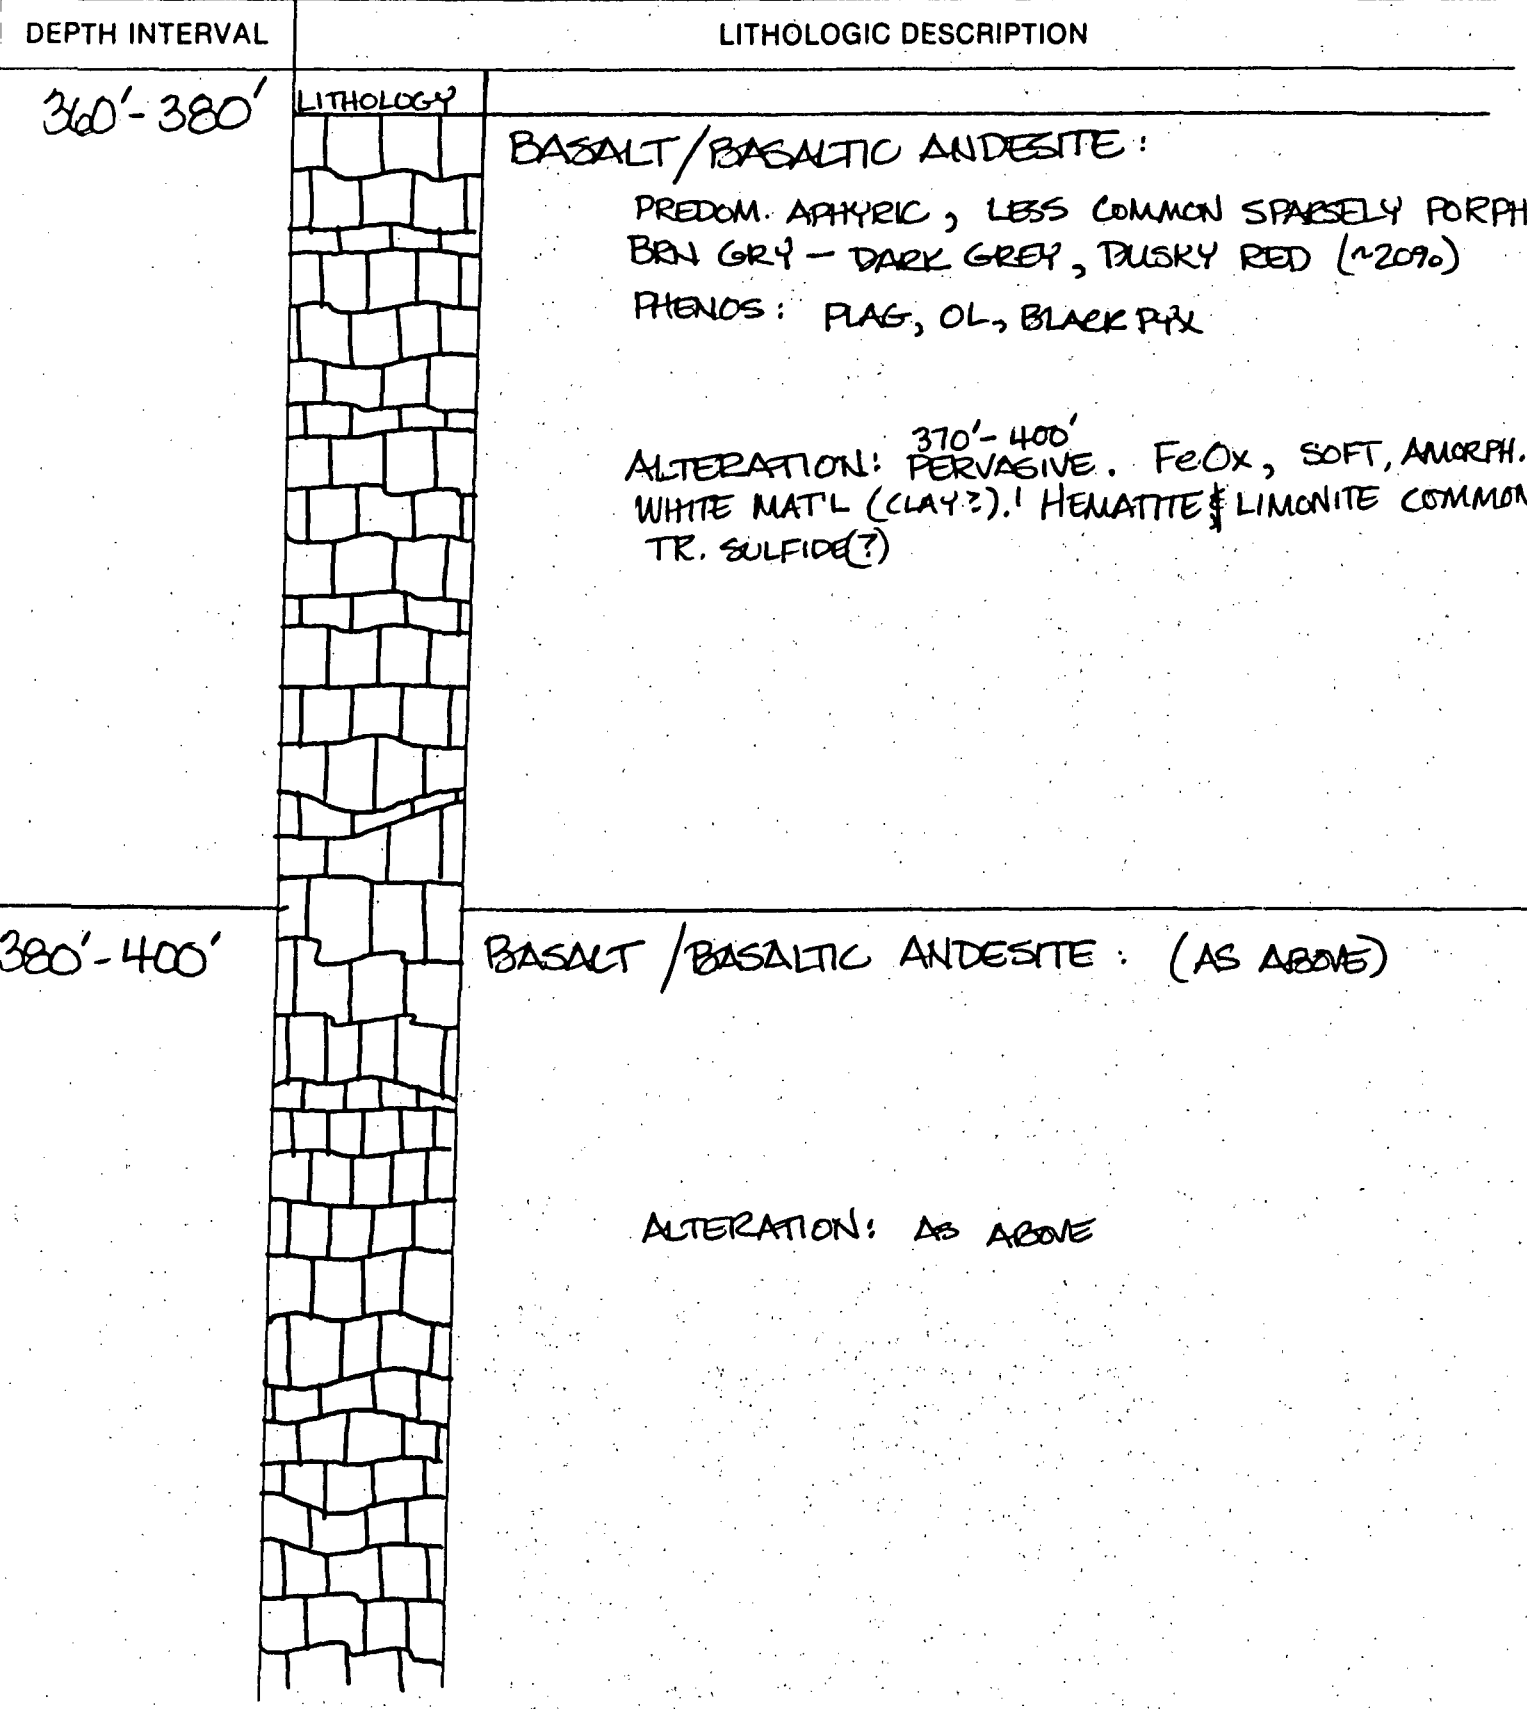 DEPTH INTERVAL LITHOLOGIC DESCRIPTION
360'-380' LITHOLOGY
BASALT/BASALTIC ANDESITE:
PREDOM. APHYRIC, LESS COMMON SPARSELY PORPH
BRN GRY - DARK GREY, DUSKY RED (~20%)
PHENOS: PLAG, OL, BLACK PYX
370'-400'
ALTERATION: PERVASIVE. FeOx, SOFT, AMORPH.
WHITE MAT'L (CLAY?).! HEMATITE & LIMONITE COMMON
TR. SULFIDE(?)
380'-400' BASALT /BASALTIC ANDESITE: (AS ABOVE)
ALTERATION: AS ABOVE